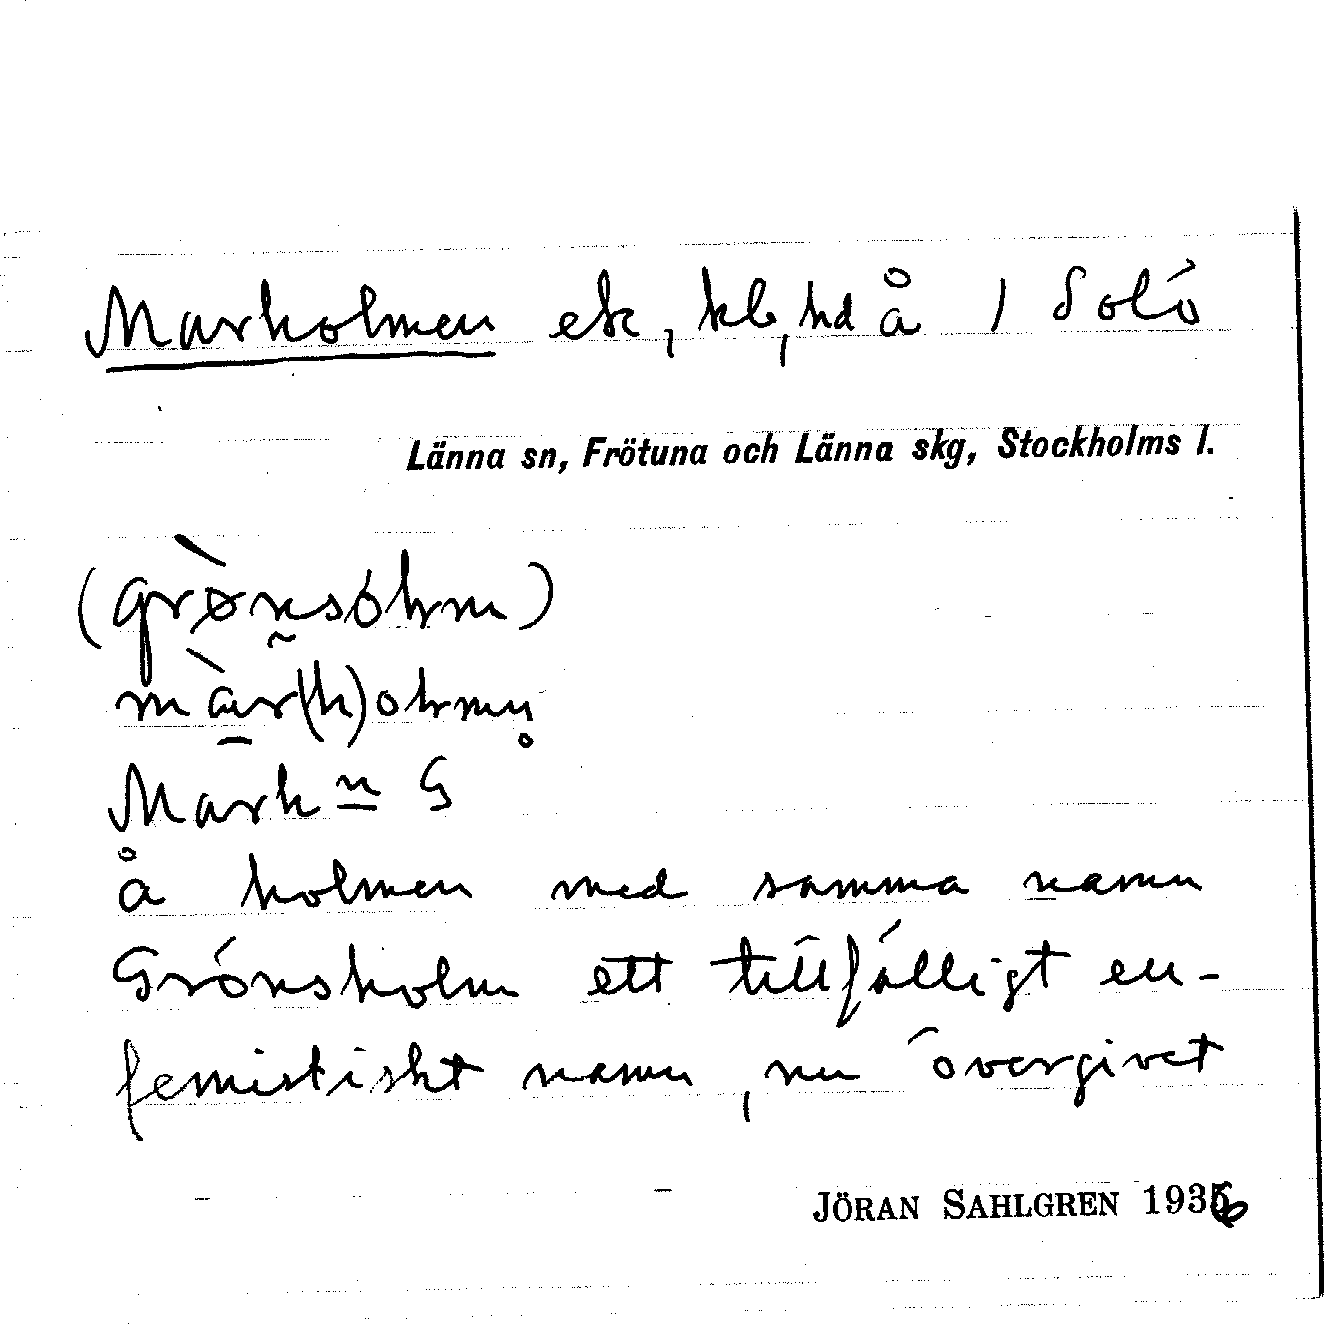 Marholmen ek, kb, hd å 1 Solö
Länna sn, Frötuna och Länna skg, Stockholms l.
(grønsohm)
mār(h)ohmn̥
Mark
å holmen med samma namn
Grönsholm ett tillfälligt eu-
femistiskt namn, nu övergivet
JÖRAN SAHLGREN 1936